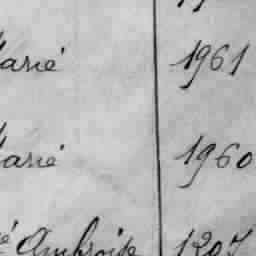 Marié 1961
Marié 1960
é Ambroise 1207